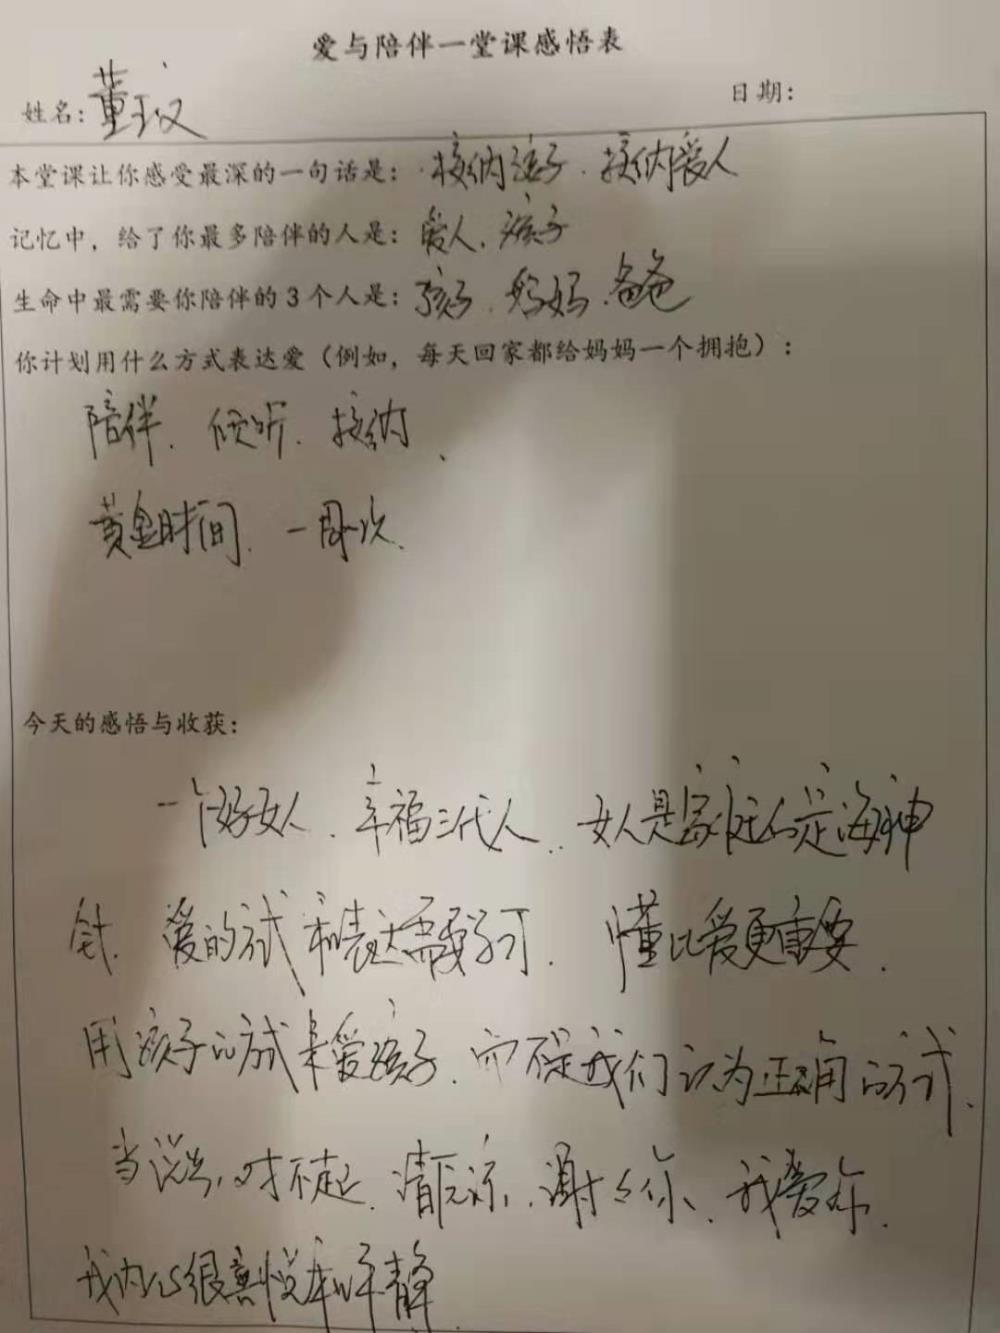 爱与陪伴一堂课感悟表
姓名：董玟 日期：
本堂课让你感受最深的一句话是：接纳孩子．接纳爱人
记忆中，给了你最多陪伴的人是：爱人、孩子
生命中最需要你陪伴的3个人是：孩子．妈妈．爸爸
你计划用什么方式表达爱（例如，每天回家都给妈妈一个拥抱）：
陪伴、倾听、接纳、
黄金时间、一周一次、
今天的感悟与收获：
一个好女人、幸福三代人、女人是家庭的定海神
针、爱的方式和表达需要学习、懂比爱更重要、
用孩子的方式来爱孩子、而不是我们认为正确的方式、
当说出、对不起、请原谅、谢谢你、我爱你、
我内心很喜悦和平静